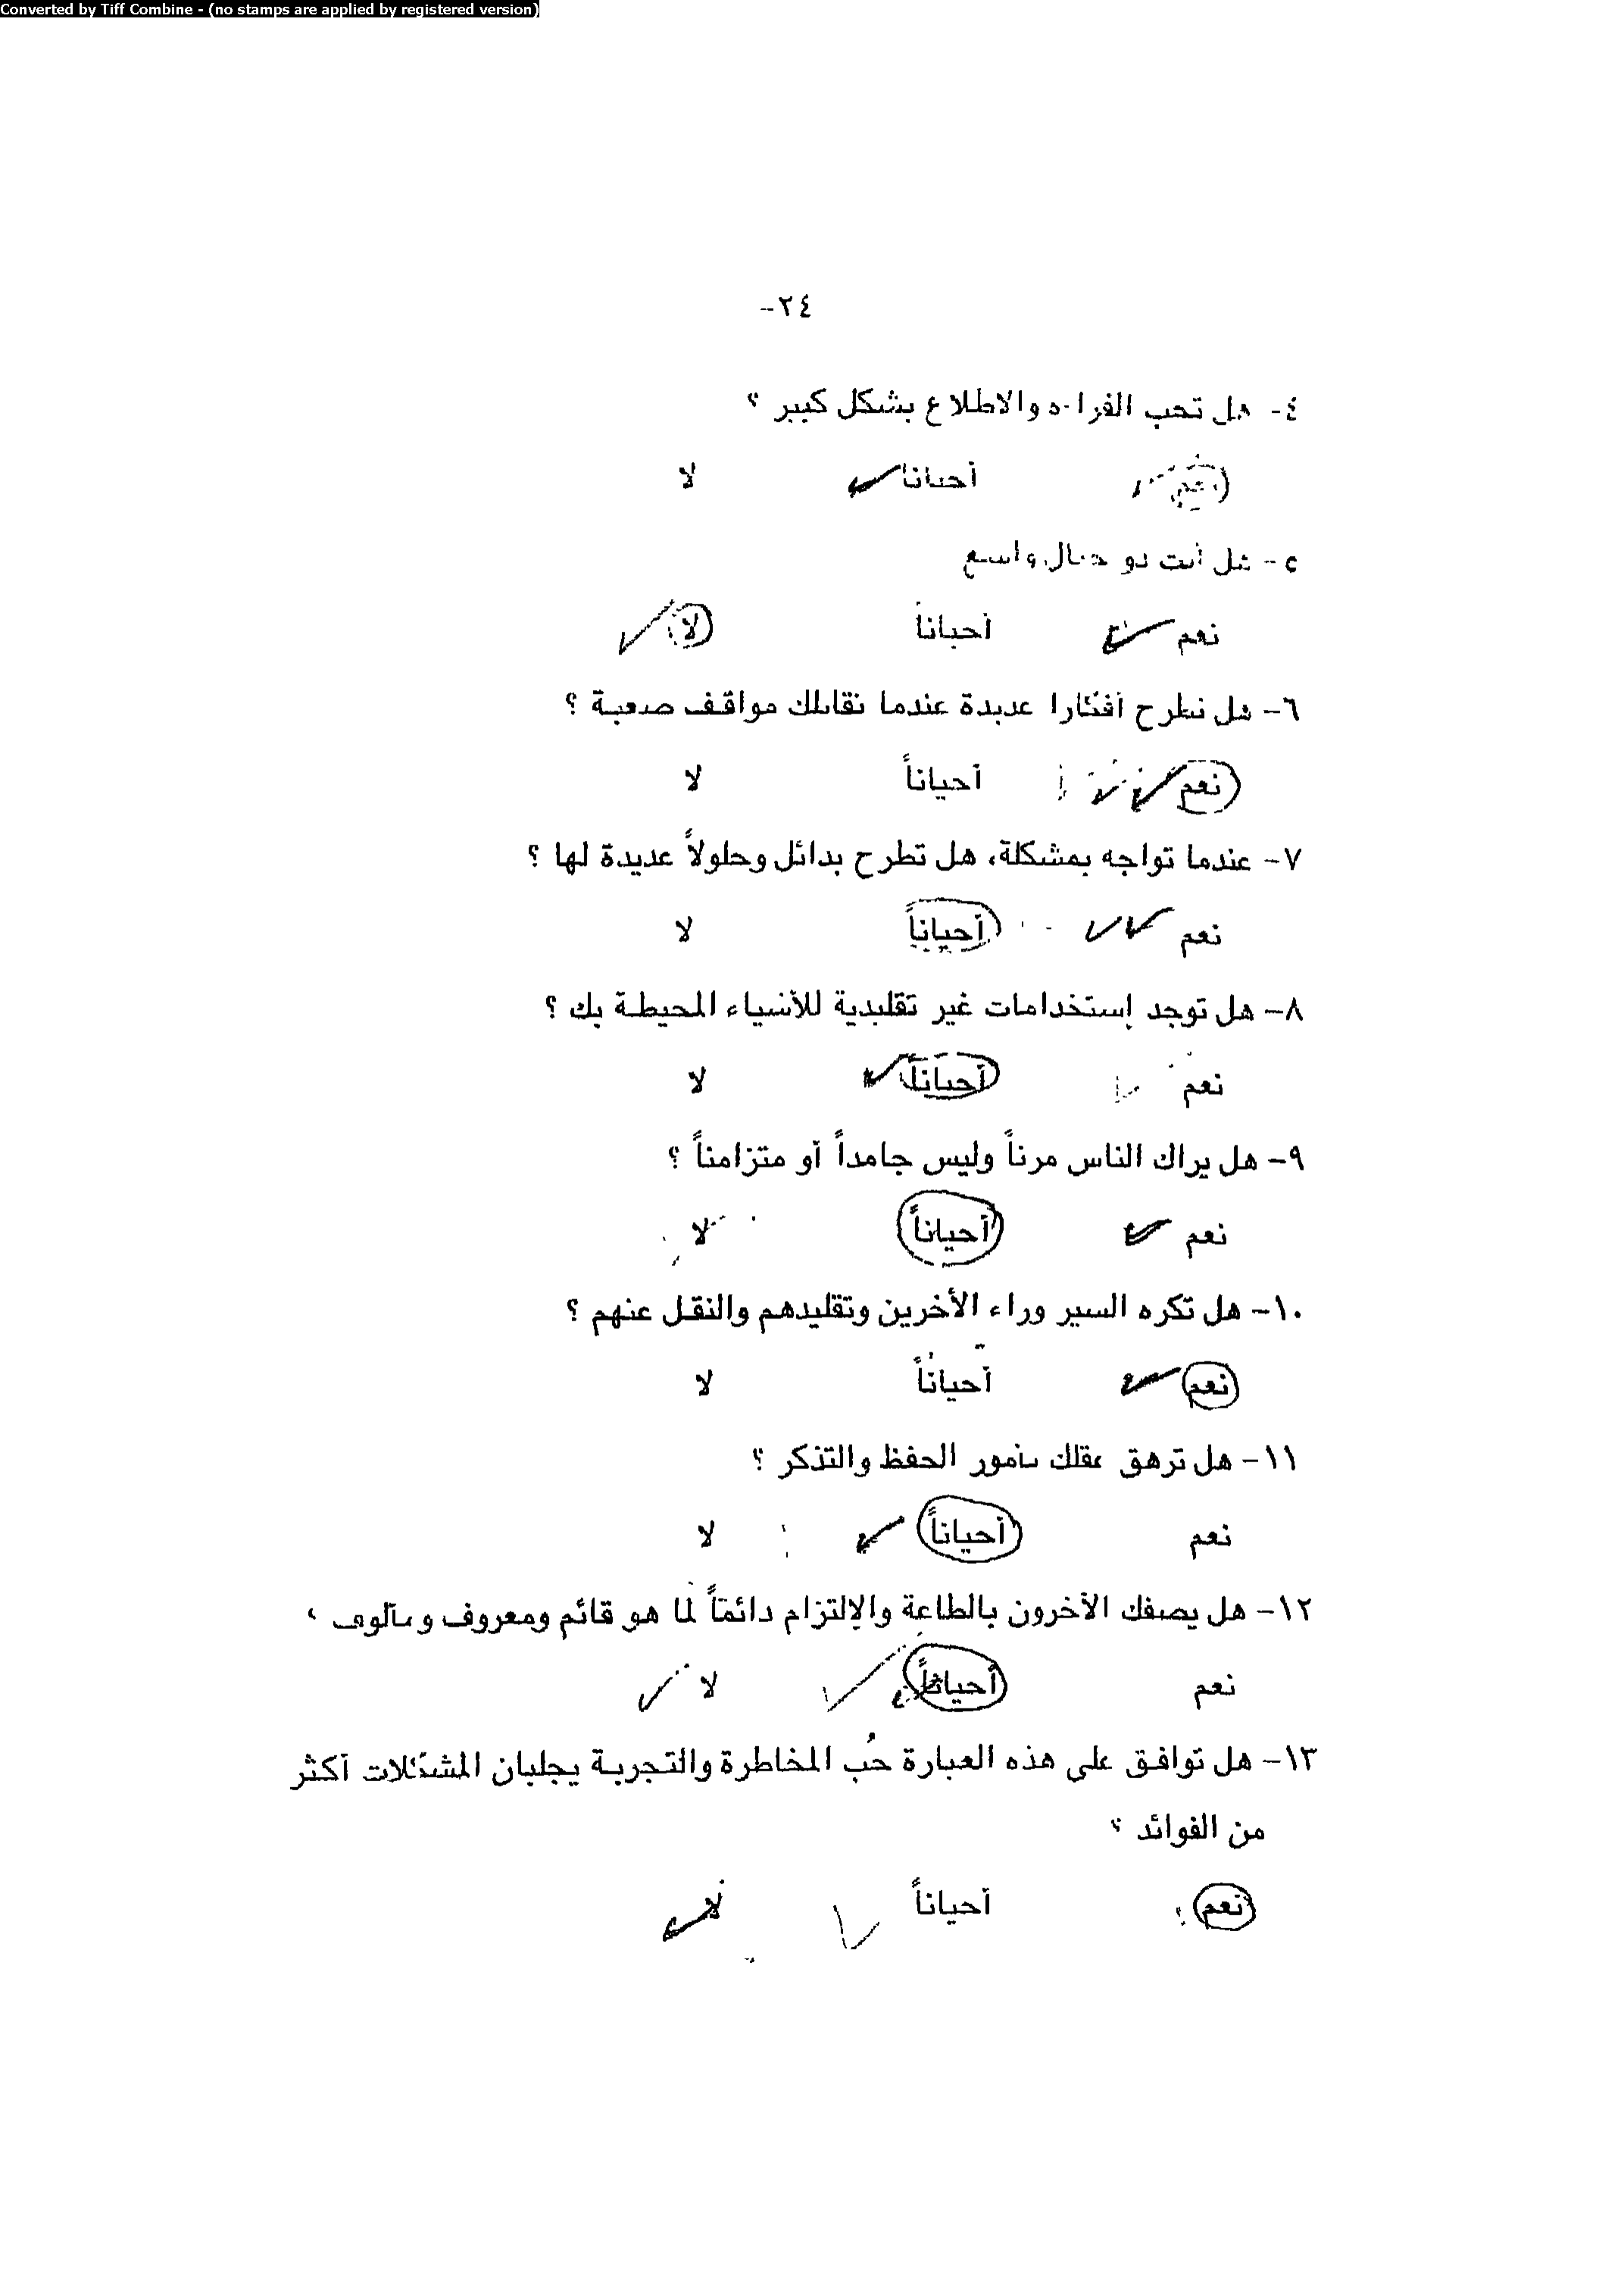 Converted by Tiff Combine - (no stamps are applied by registered version)
-٢٤-
٤- هل تحب القراءة والاطلاع بشكل كبير ؟
نعم أحياناً لا
٥- هل أنت ذو خيال واسع
نعم أحياناً لا
٦- هل تطرح أفكارا عديدة عندما تقابلك مواقف صعبة ؟
نعم أحياناً لا
٧- عندما تواجه بمشكلة، هل تطرح بدائل وحلولاً عديدة لها ؟
نعم أحياناً لا
٨- هل توجد إستخدامات غير تقليدية للأشياء المحيطة بك ؟
نعم أحياناً لا
٩- هل يراك الناس مرناً وليس جامداً أو متزامناً ؟
نعم أحياناً لا
١٠- هل تكره السير وراء الأخرين وتقليدهم والنقل عنهم ؟
نعم أحياناً لا
١١- هل ترهق عقلك بأمور الحفظ والتذكر ؟
نعم أحياناً لا
١٢- هل يصفك الآخرون بالطاعة والإلتزام دائماً لما هو قائم ومعروف ومألوف ؟
نعم أحياناً لا
١٣- هل توافق على هذه العبارة حُب المخاطرة والتجربة يجلبان المشكلات أكثر
من الفوائد ؟
نعم أحياناً لا